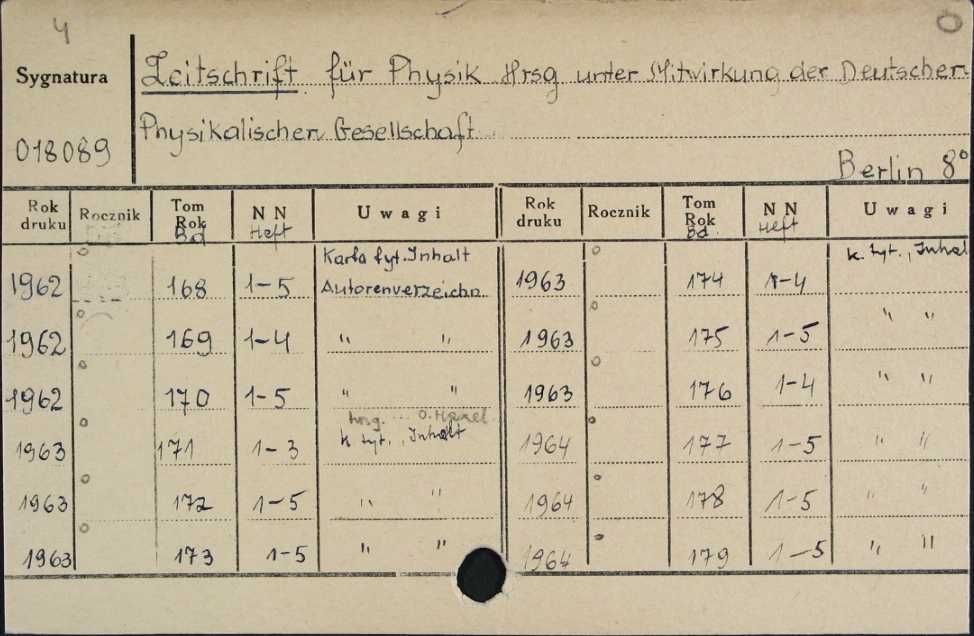 4
Sygnatura
018089
Zeitschrift für Physik Hrsg unter Mitwirkung der Deutschen
Physikalischen Gesellschaft
Berlin 8°
Rok druku Rocznik Tom Rok Bd N N Heft Uwagi Rok druku Rocznik Tom Rok Bd. N N Heft Uwagi
Karta tyt. Inhalt k. tyt., Inhal
1962 168 1-5 Autorenverzeichn. 1963 174 1-4
1962 169 1-4 " " 1963 175 1-5 " "
1962 170 1-5 " " 1963 176 1-4 " "
Hrsg. O. Haxel
1963 171 1-3 k tyt., Inhalt 1964 177 1-5 " "
1963 172 1-5 " " 1964 178 1-5 " "
1963 173 1-5 " " 1964 179 1-5 " "